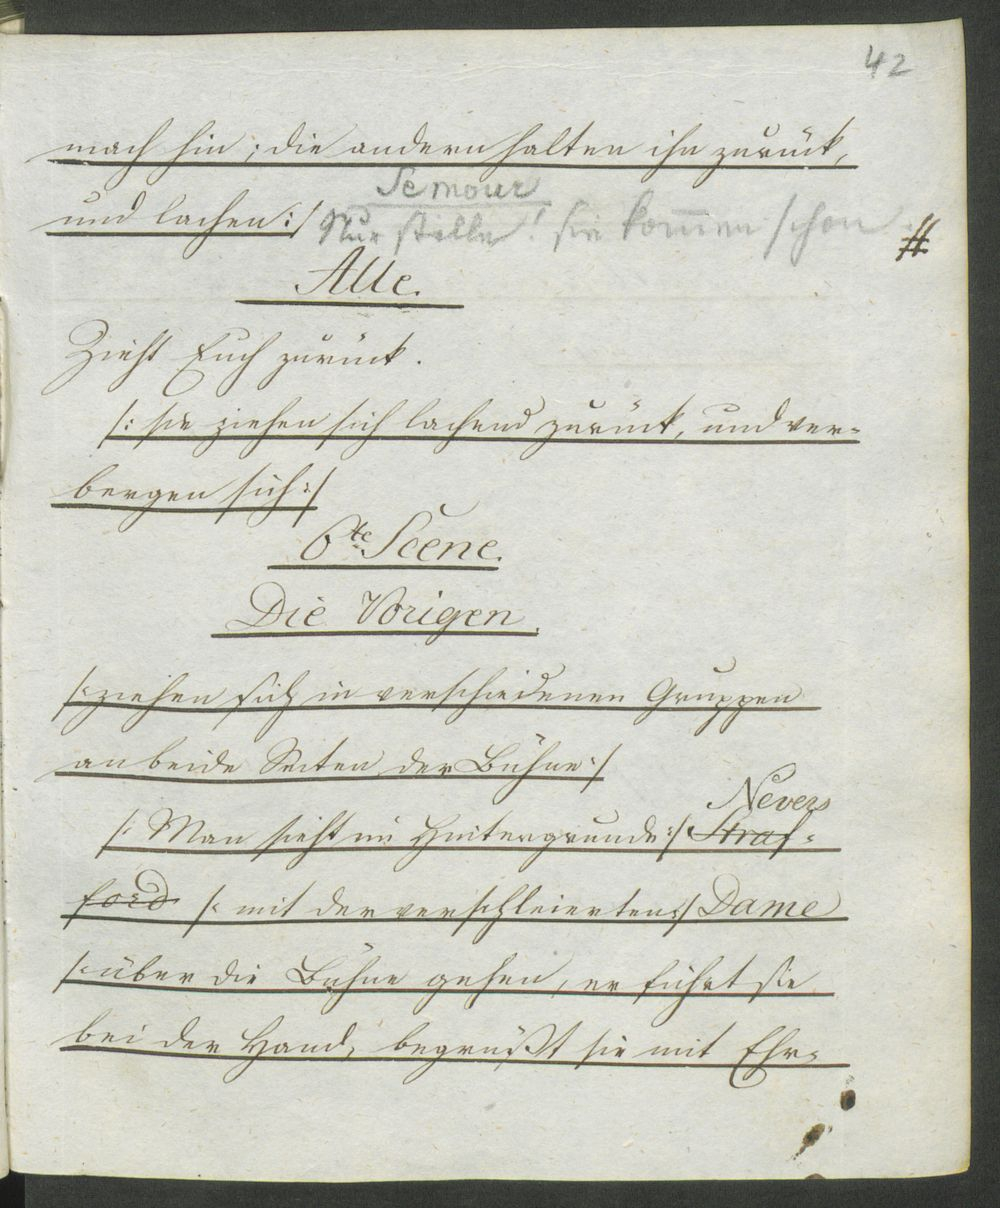 42
mach hin; die andern halten ihn zurück,
Semour
und lachen:/ Nur stille! sie kom̅en schon #
Alle.
Zieht Euch zurück.
/: sie ziehen sich lachend zurück, und ver-
bergen sich:/
6te Scene.
Die Vorigen.
/:ziehen sich in verschiedenen Gruppen
an beide Seiten der Bühne:/
Nevers
/: Man sieht im Hintergrunde:/ Straf-
ford /: mit der verschleierten:/ Dame
/:über die Bühne gehen, er führt sie
bei der Hand, begrüßt sie mit Ehr-